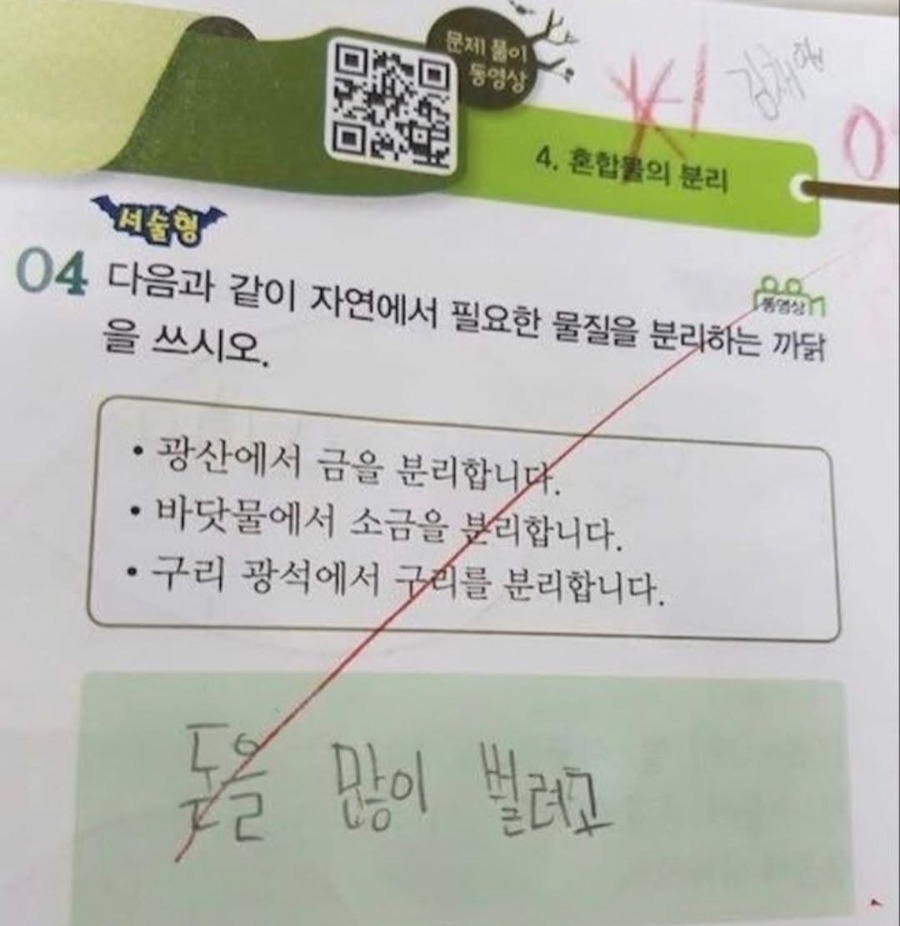 문제 풀이
동영상
4. 혼합물의 분리
서술형
04 다음과 같이 자연에서 필요한 물질을 분리하는 까닭
을 쓰시오.
동영상
• 광산에서 금을 분리합니다.
• 바닷물에서 소금을 분리합니다.
• 구리 광석에서 구리를 분리합니다.
돈을 많이 벌려고